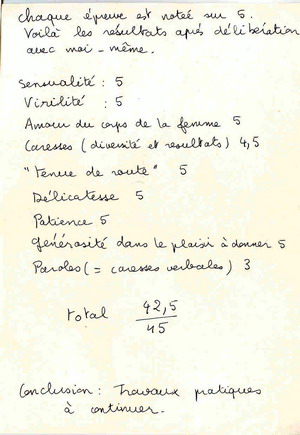 chaque épreuve est notée sur 5.
Voilà les résultats après délibération
avec moi-même.
Sensualité : 5
Virilité : 5
Amour du corps de la femme 5
Caresses (diversité et resultats) 4,5
"tenue de route" 5
Délicatesse 5
Patience 5
générosité dans le plaisir à donner 5
Paroles (= caresses verbales) 3
total 42,5
45
Conclusion : Travaux pratiques
à continuer.